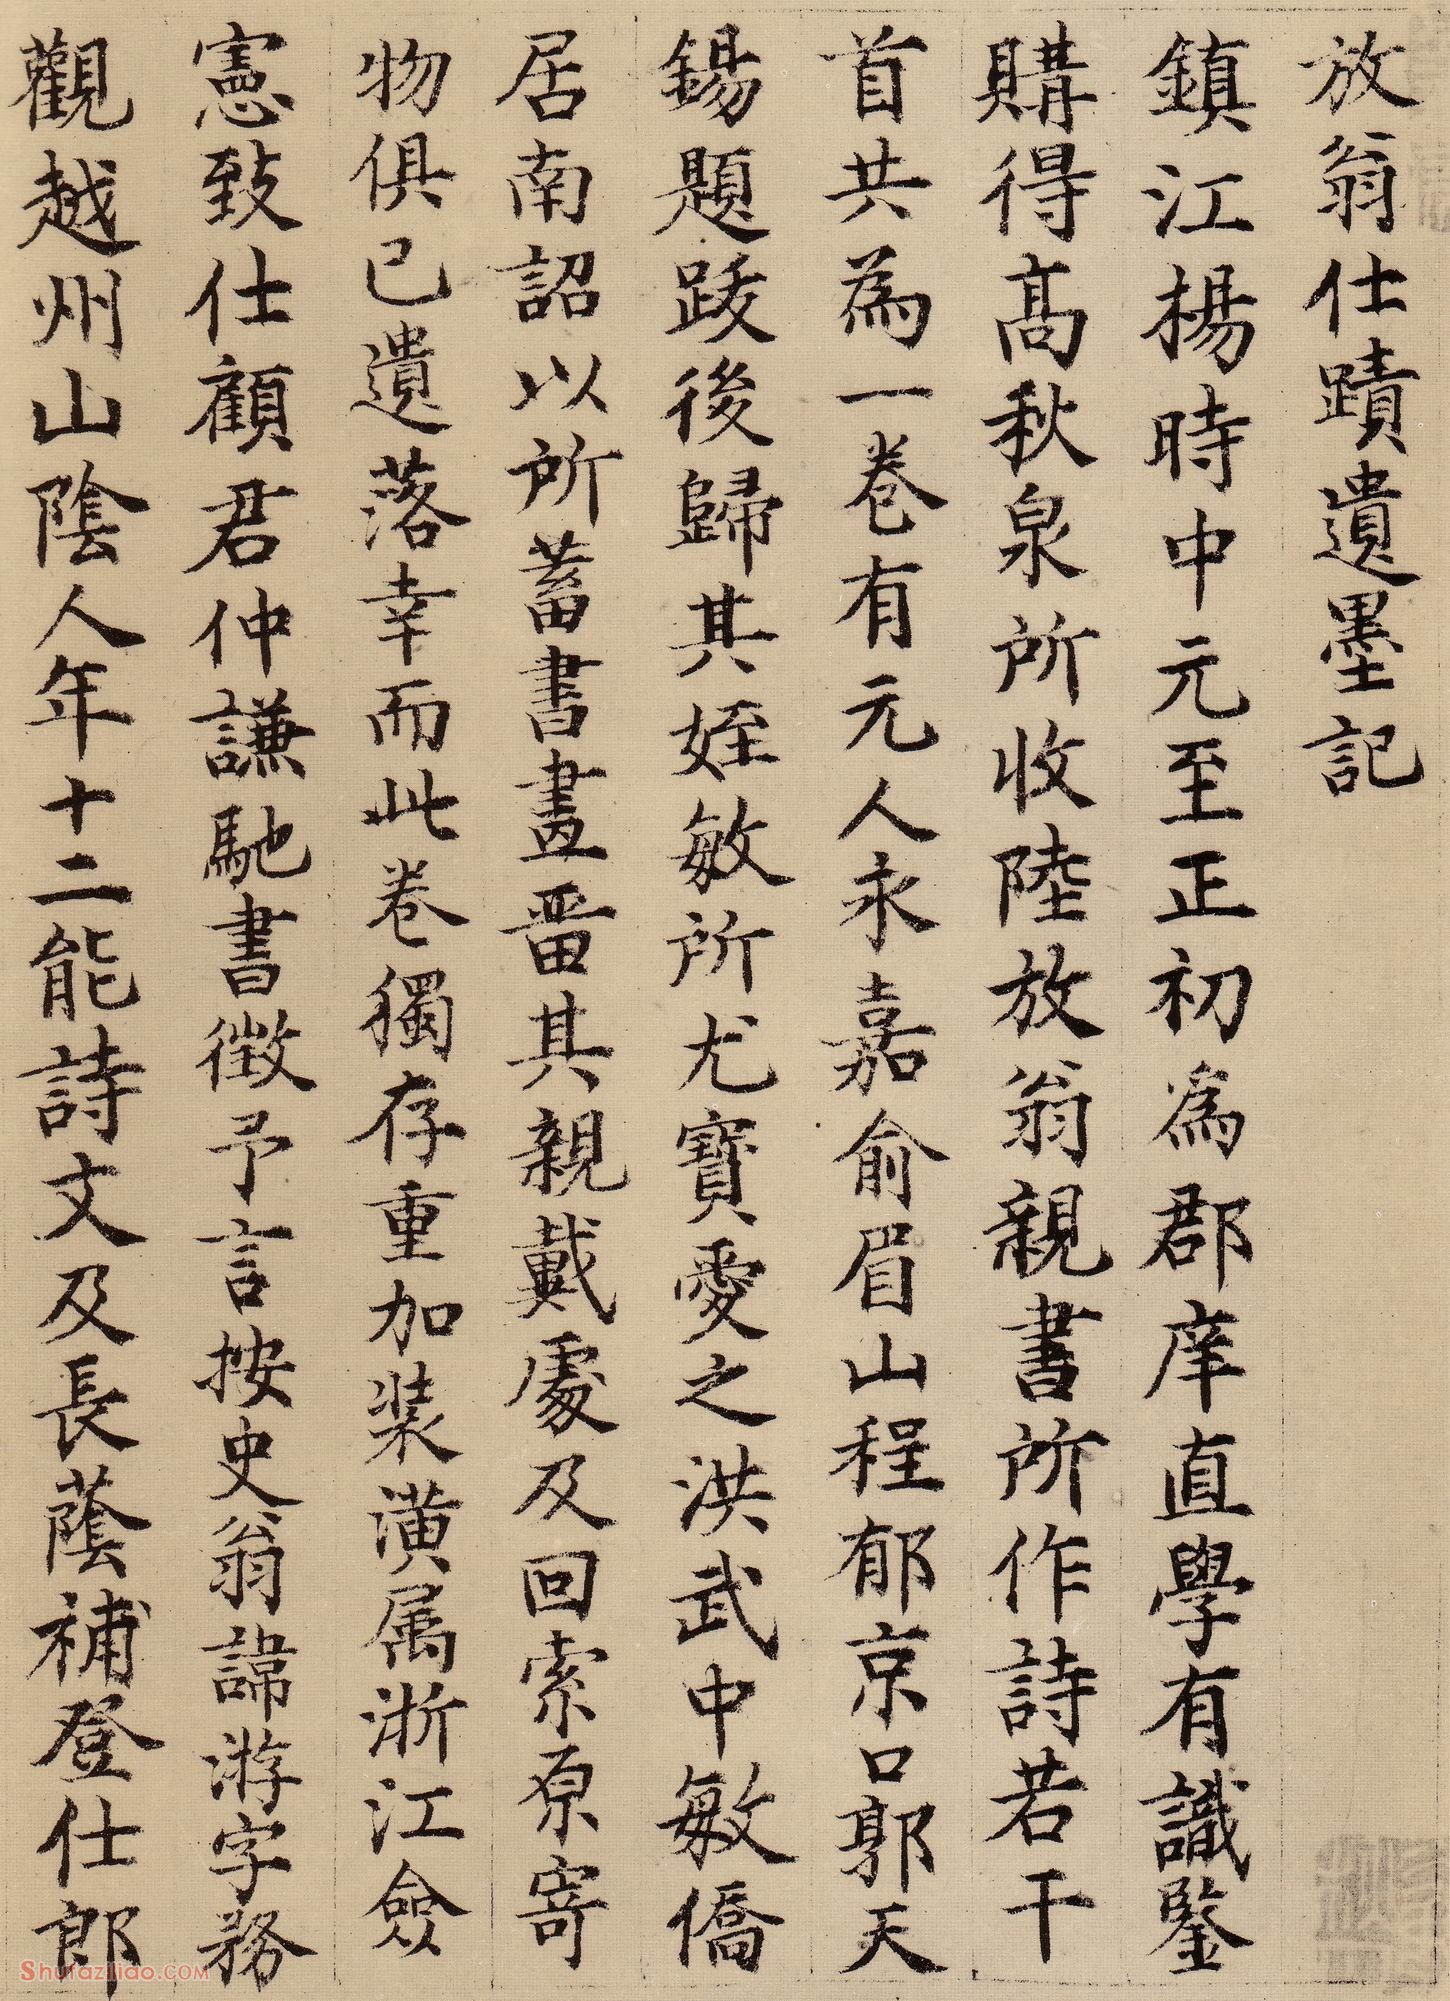 放翁仕蹟遺墨記
鎮江楊時中元至正初為郡庠直學有識鑒
購得髙秋泉所收陸放翁親書所作詩若干
首共為一卷有元人永嘉俞眉山程郁京口郭天
錫題跋後歸其姪敏所尤寶愛之洪武中敏僑
居南詔以所蓄書畫畱其親戴處及回索原寄
物俱已遺落幸而此卷獨存重加装潢属浙江僉
憲致仕顧君仲謙馳書徵予言按史翁諱游字務
觀越州山陰人年十二能詩文及長蔭補登仕郎
Shufaziliao.COM